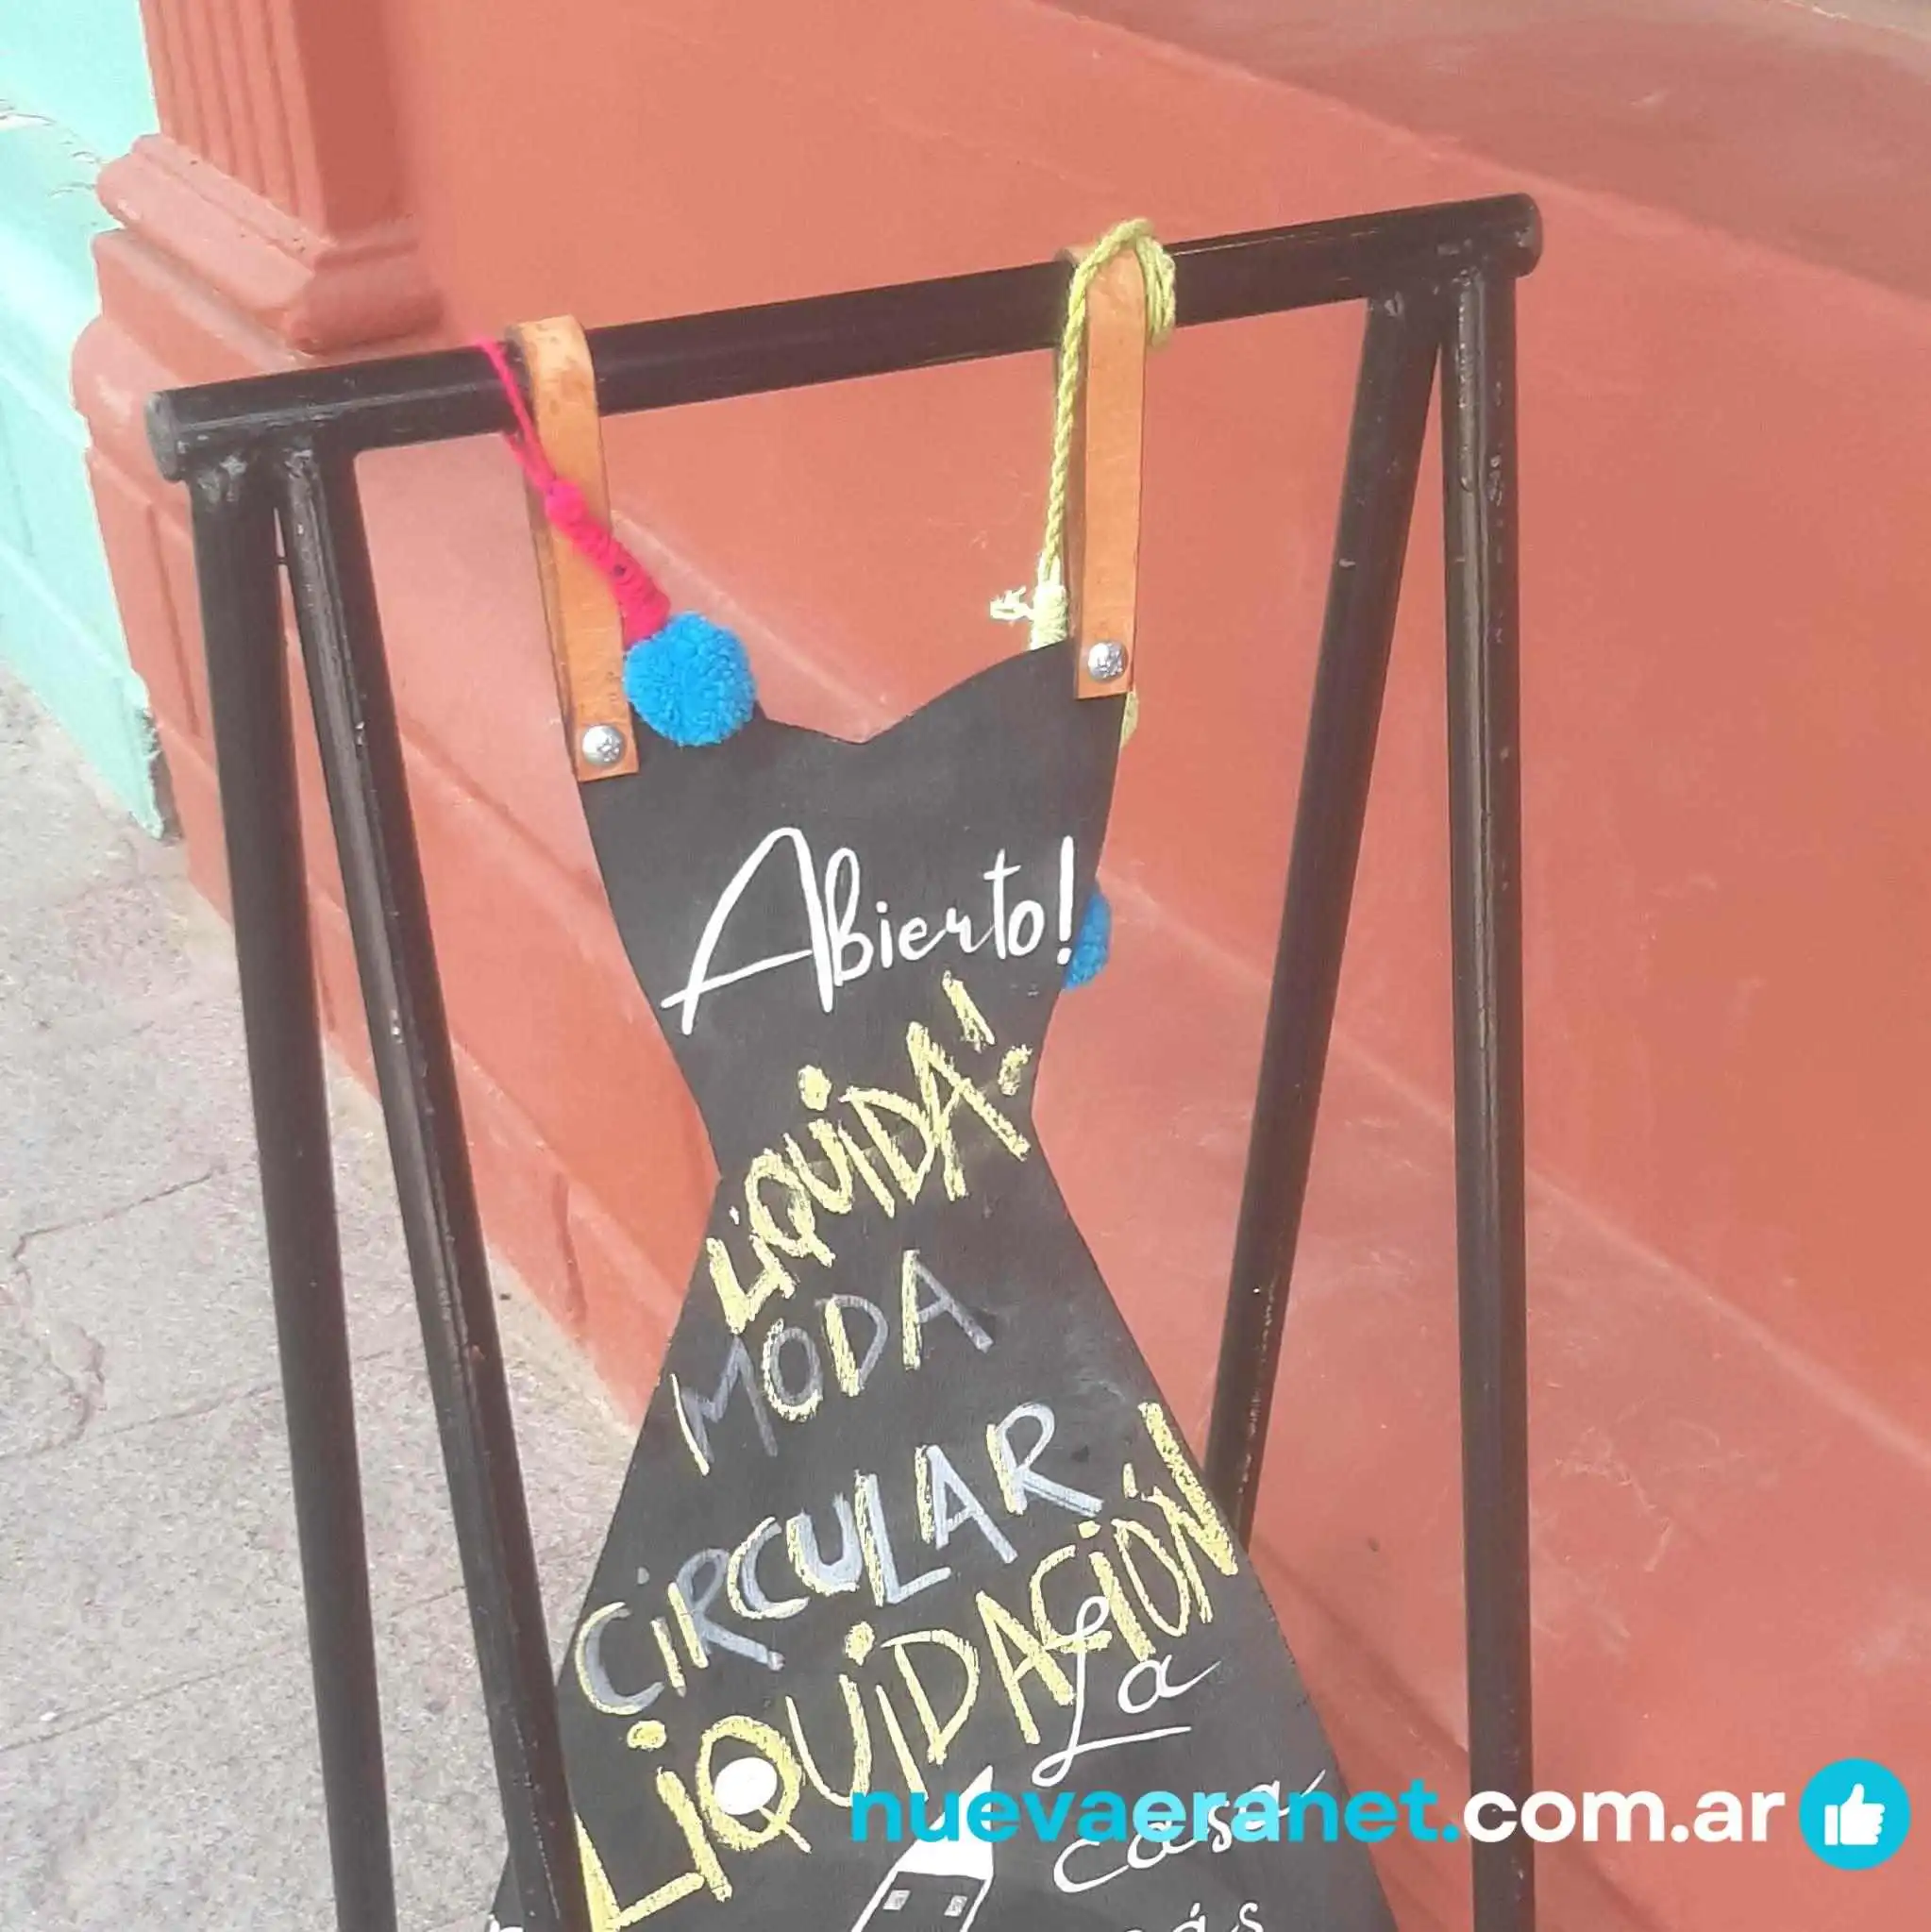 Abierto!
LIQUIDA!
MODA
CIRCULAR
LIQUIDACIÓN
La
casa
nuevaeranet.com.ar